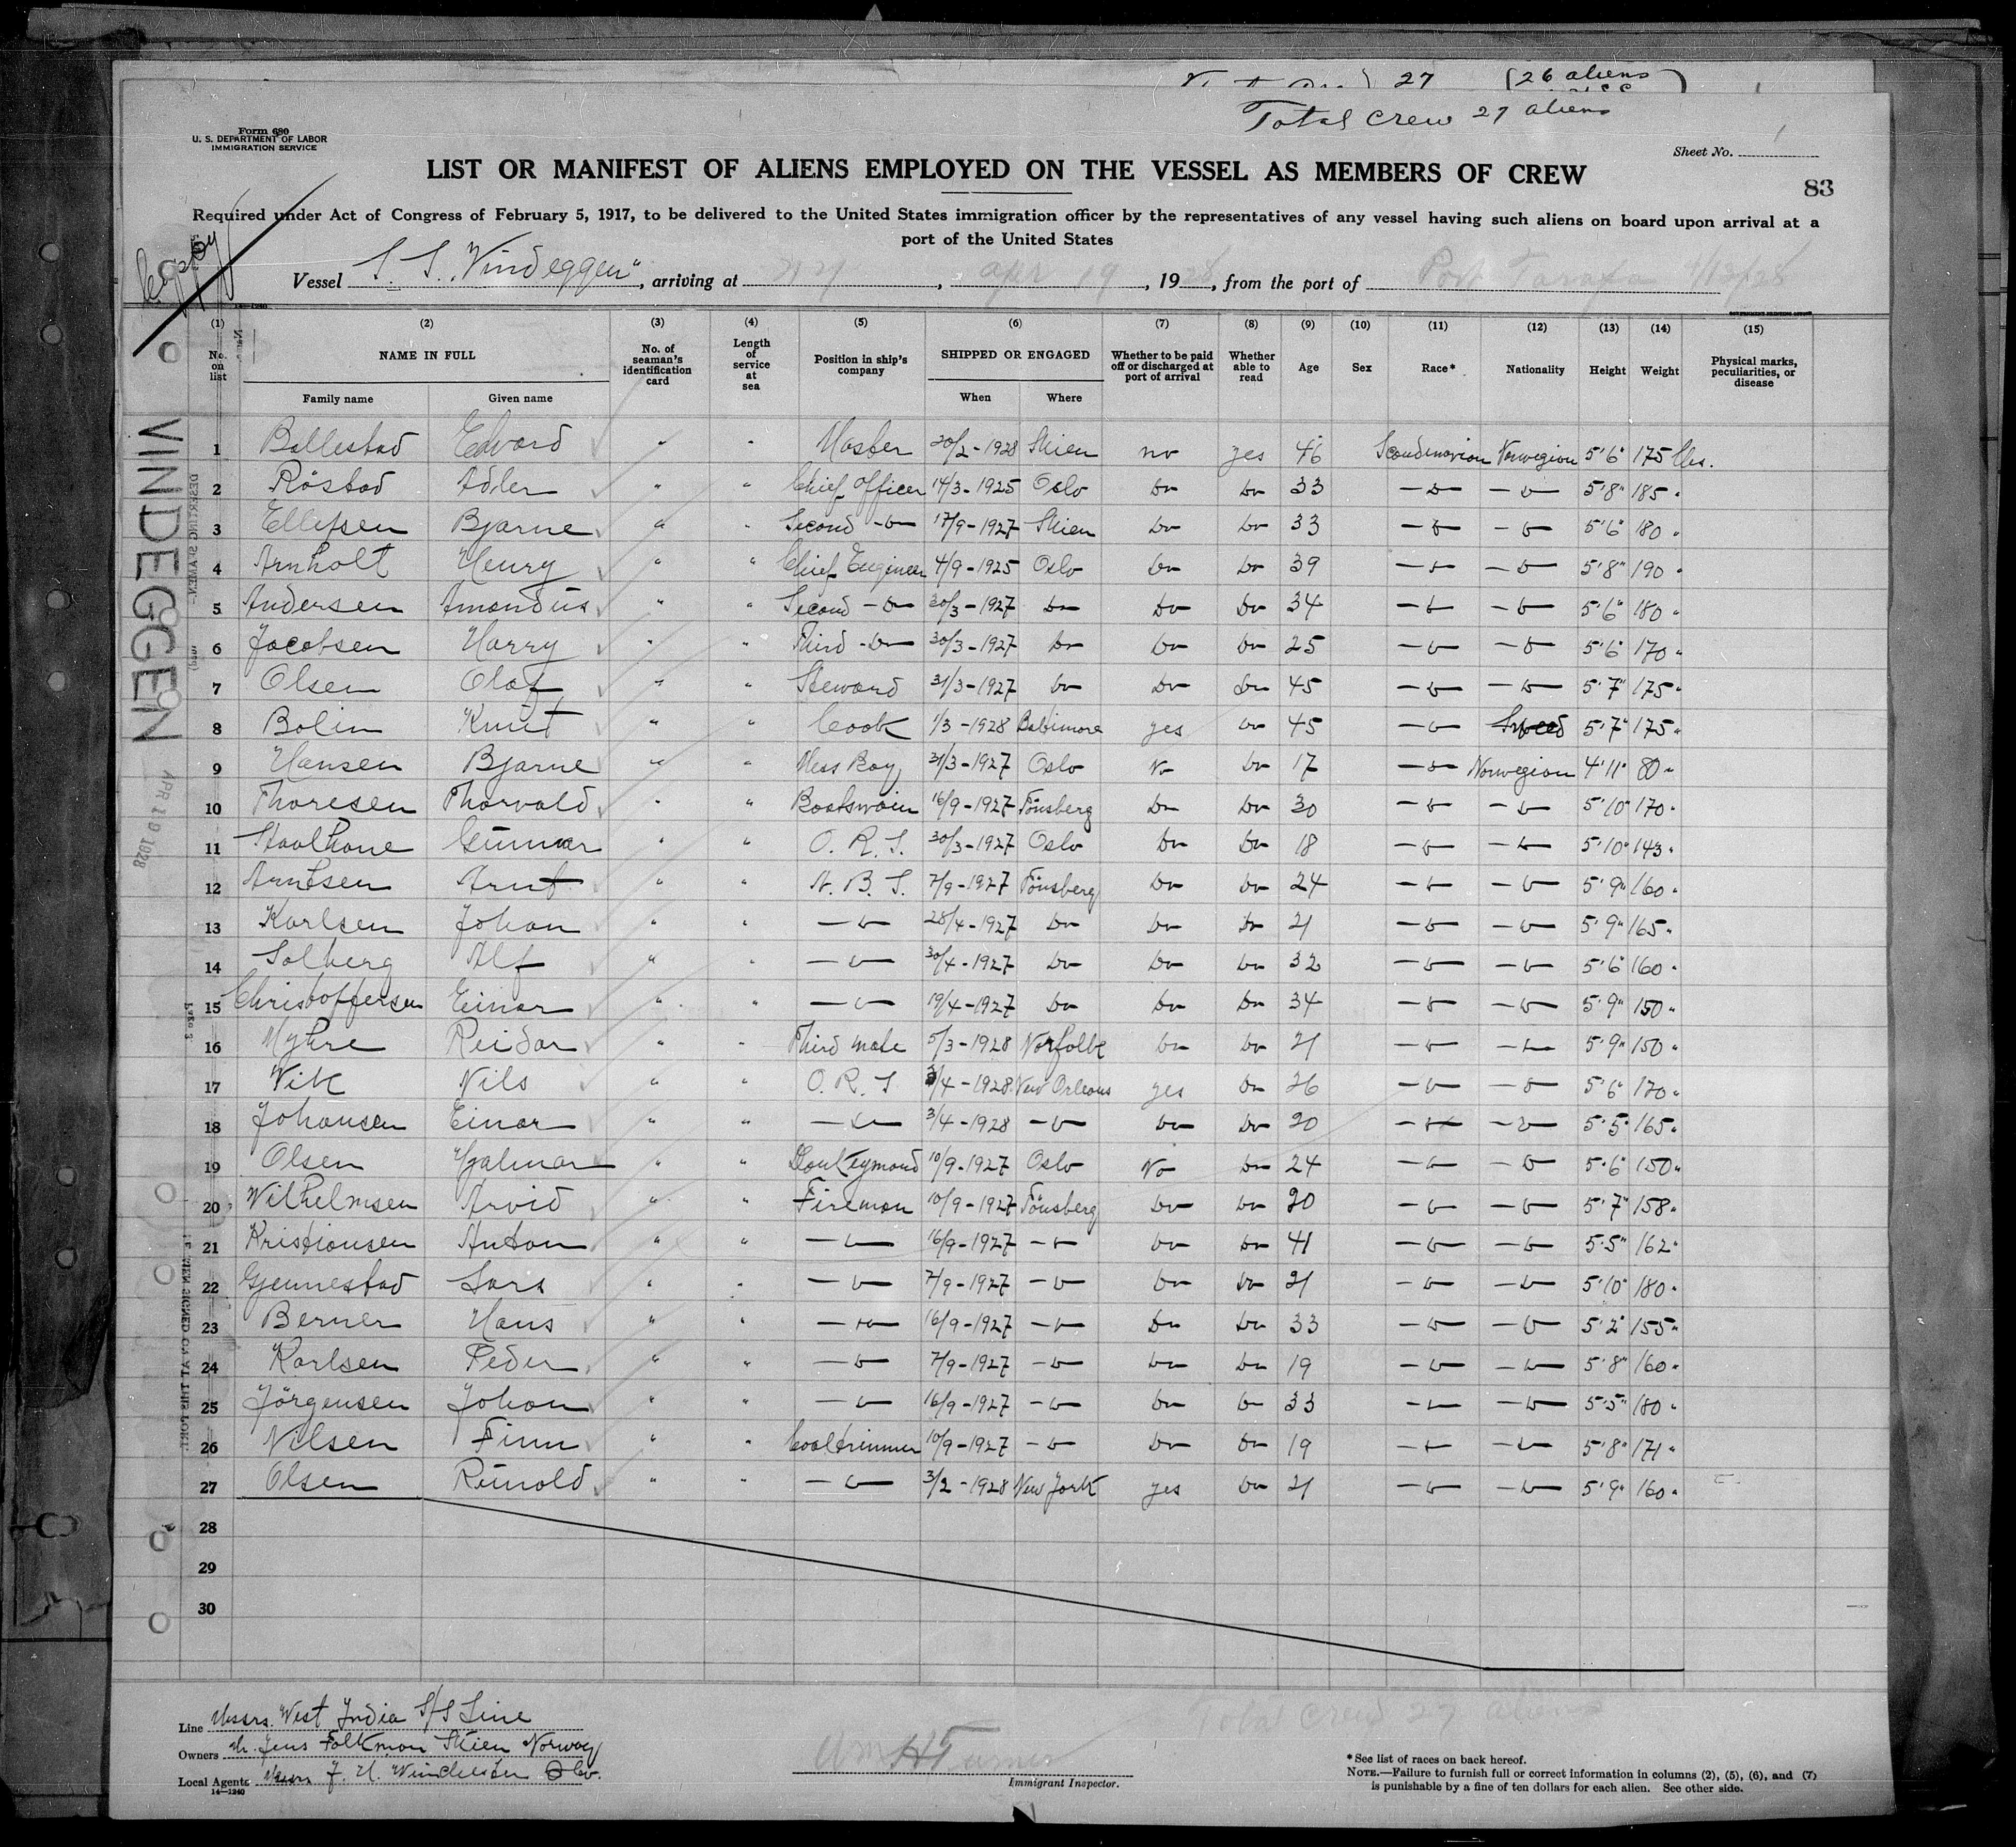 27 (26 aliens
Total Crew 27 aliens
Form 680
U. S. DEPARTMENT OF LABOR
IMMIGRATION SERVICE
Sheet No. 1
LIST OR MANIFEST OF ALIENS EMPLOYED ON THE VESSEL AS MEMBERS OF CREW
83
Required under Act of Congress of February 5, 1917, to be delivered to the United States immigration officer by the representatives of any vessel having such aliens on board upon arrival at a
port of the United States
Vessel S.S. "Vindeggen", arriving at NY, Apr 19, 1928, from the port of Port Tarafa 4/13/28
(1) (2) (3) (4) (5) (6) (7) (8) (9) (10) (11) (12) (13) (14) (15)
No. on list NAME IN FULL No. of seaman's identification card Length of service at sea Position in ship's company SHIPPED OR ENGAGED Whether to be paid off or discharged at port of arrival Whether able to read Age Sex Race* Nationality Height Weight Physical marks, peculiarities, or disease
Family name Given name When Where
1 Bollestad Edvard " " Master 20/2-1928 Skien no yes 46 Scandinavian Norwegian 5'6" 175 lbs.
2 Röstad Adler " " Chief Officer 14/3-1925 Oslo do do 33 -do- -do- 5'8" 185 "
3 Ellefsen Bjarne " " Second -do- 17/9-1927 Skien do do 33 -do- -do- 5'6" 180 "
4 Arnholt Henry " " Chief Engineer 4/9-1925 Oslo do do 39 -do- -do- 5'8" 190 "
5 Andersen Amandus " " Second -do- 30/3-1927 do do do 34 -do- -do- 5'6" 180 "
6 Jacobsen Harry " " Third -do- 30/3-1927 do do do 25 -do- -do- 5'6" 170 "
7 Olsen Olaf " " Steward 31/3-1927 do do do 45 -do- -do- 5'7" 175 "
8 Bolin Knut " " Cook 1/3-1928 Baltimore yes do 45 -do- Sweed 5'7" 175 "
9 Hansen Bjarne " " Mess Boy 31/3-1927 Oslo No do 17 -do- Norwegian 4'11" 80 "
10 Thoresen Thorvald " " Boatswain 16/9-1927 Tönsberg do do 30 -do- -do- 5'10" 170 "
11 Gunnar " " O. R. S. 30/3-1927 Oslo do do 18 -do- -do- 5'10" 143 "
12 Arntsen Arnt " " A. B. S. 7/9-1927 Tönsberg do do 24 -do- -do- 5'9" 160 "
13 Karlsen Johan " " -do- 28/4-1927 do do do 21 -do- -do- 5'9" 165 "
14 Solberg Alf " " -do- 30/4-1927 do do do 32 -do- -do- 5'6" 160 "
15 Christoffersen Einar " " -do- 19/4-1927 do do do 34 -do- -do- 5'9" 150 "
16 Myhre Reidar " " Third mate 5/3-1928 Norfolk do do 21 -do- -do- 5'9" 150 "
17 Vik Nils " " O. R. S. 3/4-1928 New Orleans yes do 26 -do- -do- 5'6" 170 "
18 Johansen Einar " " -do- 3/4-1928 -do- do do 20 -do- -do- 5'5" 165 "
19 Olsen Hjalmar " " Donkeymand 10/9-1927 Oslo No do 24 -do- -do- 5'6" 150 "
20 Wilhelmsen Arvid " " Fireman 10/9-1927 Tönsberg do do 20 -do- -do- 5'7" 158 "
21 Kristiansen Anton " " -do- 16/9-1927 -do- do do 41 -do- -do- 5'5" 162 "
22 Gjennestad Lars " " -do- 7/9-1927 -do- do do 21 -do- -do- 5'10" 180 "
23 Berner Hans " " -do- 16/9-1927 -do- do do 33 -do- -do- 5'2" 155 "
24 Karlsen Peder " " -do- 7/9-1927 -do- do do 19 -do- -do- 5'8" 160 "
25 Jörgensen Johan " " -do- 16/9-1927 -do- do do 33 -do- -do- 5'5" 180 "
26 Nilsen Finn " " Coaltrimmer 10/9-1927 -do- do do 19 -do- -do- 5'8" 171 "
27 Olsen Reinold " " -do- 3/2-1928 New York yes do 21 -do- -do- 5'9" 160 "
28
29
30
VINDEGGEN
APR 19 1928
Total Crew 27 aliens
Line Messrs. West India S/S Line
Owners Mr. Jens Folkman Skien Norway
Local Agents Messrs F. H. Winchester & Co.
14—1240
Immigrant Inspector.
*See list of races on back hereof.
NOTE.—Failure to furnish full or correct information in columns (2), (5), (6), and (7)
is punishable by a fine of ten dollars for each alien. See other side.